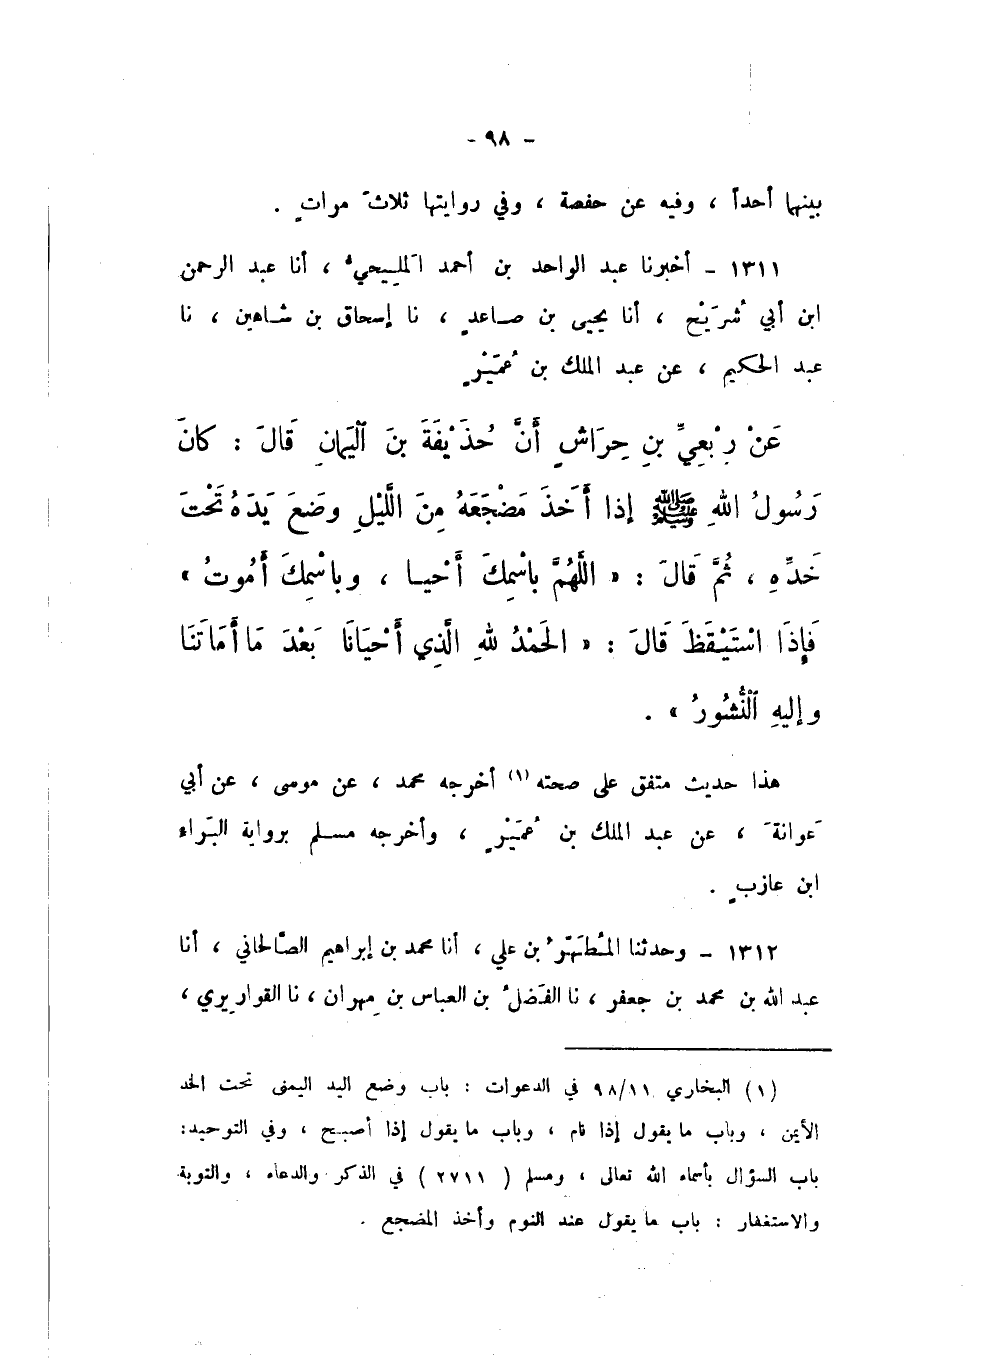 - ٩٨ -
بينها أحداً ، وفيه عن حفصة ، وفي روايتها ثلاثَ مراتٍ .
١٣١١ - أخبرنا عبد الواحد بن أحمد المَلِيحيُّ ، أنا عبد الرحمن
ابن أبي شُرَيْحٍ ، أنا يحيى بن صاعدٍ ، نا إسحاق بن شاهين ، نا
عبد الحكيم ، عن عبد الملك بن عُمَيْرٍ
عَنْ رِبْعِيِّ بنِ حِرَاشٍ أَنَّ حُذَيْفَةَ بنَ ٱليَمانِ قَالَ : كَانَ
رَسُولُ اللهِ ﷺ إذا أَخذَ مَضْجَعَهُ مِنَ اللَّيْلِ وضَعَ يَدَهُ تَحْتَ
خَدِّهِ ، ثُمَّ قَالَ : « اللَّهُمَّ بِاسْمِكَ أَحْيا ، وباسْمِكَ أَمُوتُ »
فَإِذَا اسْتَيْقَظَ قَالَ : « الحَمْدُ للهِ الَّذِي أَحْيَانَا بَعْدَ مَا أَمَاتَنَا
وإليهِ ٱلنُّشُورُ » .
هذا حديث متفق على صحته (١) أخرجه محمد ، عن موسى ، عن أبي
عَوانةَ ، عن عبد الملك بن عُمَيْرٍ ، وأخرجه مسلم برواية البَراء
ابن عازبٍ .
١٣١٢ - وحدثنا المُطَهَّرُ بن علي ، أنا محمد بن إبراهيم الصَّالحاني ، أنا
عبد الله بن محمد بن جعفر ، نا الفَضلُ بن العباس بن مِهران ، نا القواريري ،
(١) البخاري ٩٨/١١ في الدعوات : باب وضع اليد اليمنى تحت الخد
الأيمن ، وباب ما يقول إذا نام ، وباب ما يقول إذا أصبح ، وفي التوحيد:
باب السؤال بأسماء الله تعالى ، ومسلم ( ٢٧١١ ) في الذكر والدعاء ، والتوبة
والاستغفار : باب ما يقول عند النوم وأخذ المضجع .